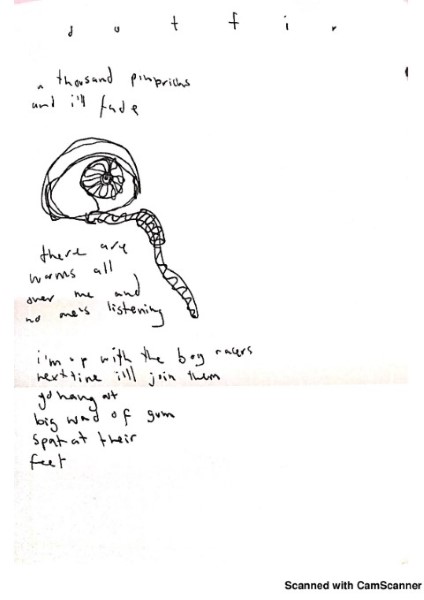 a thousand pinpricks
and i'll fade
there are
worms all
over me and
no one's listening
i'm up with the boy racers
next time i'll join them
go hang at
big wad of gum
spat at their
feet
Scanned with CamScanner